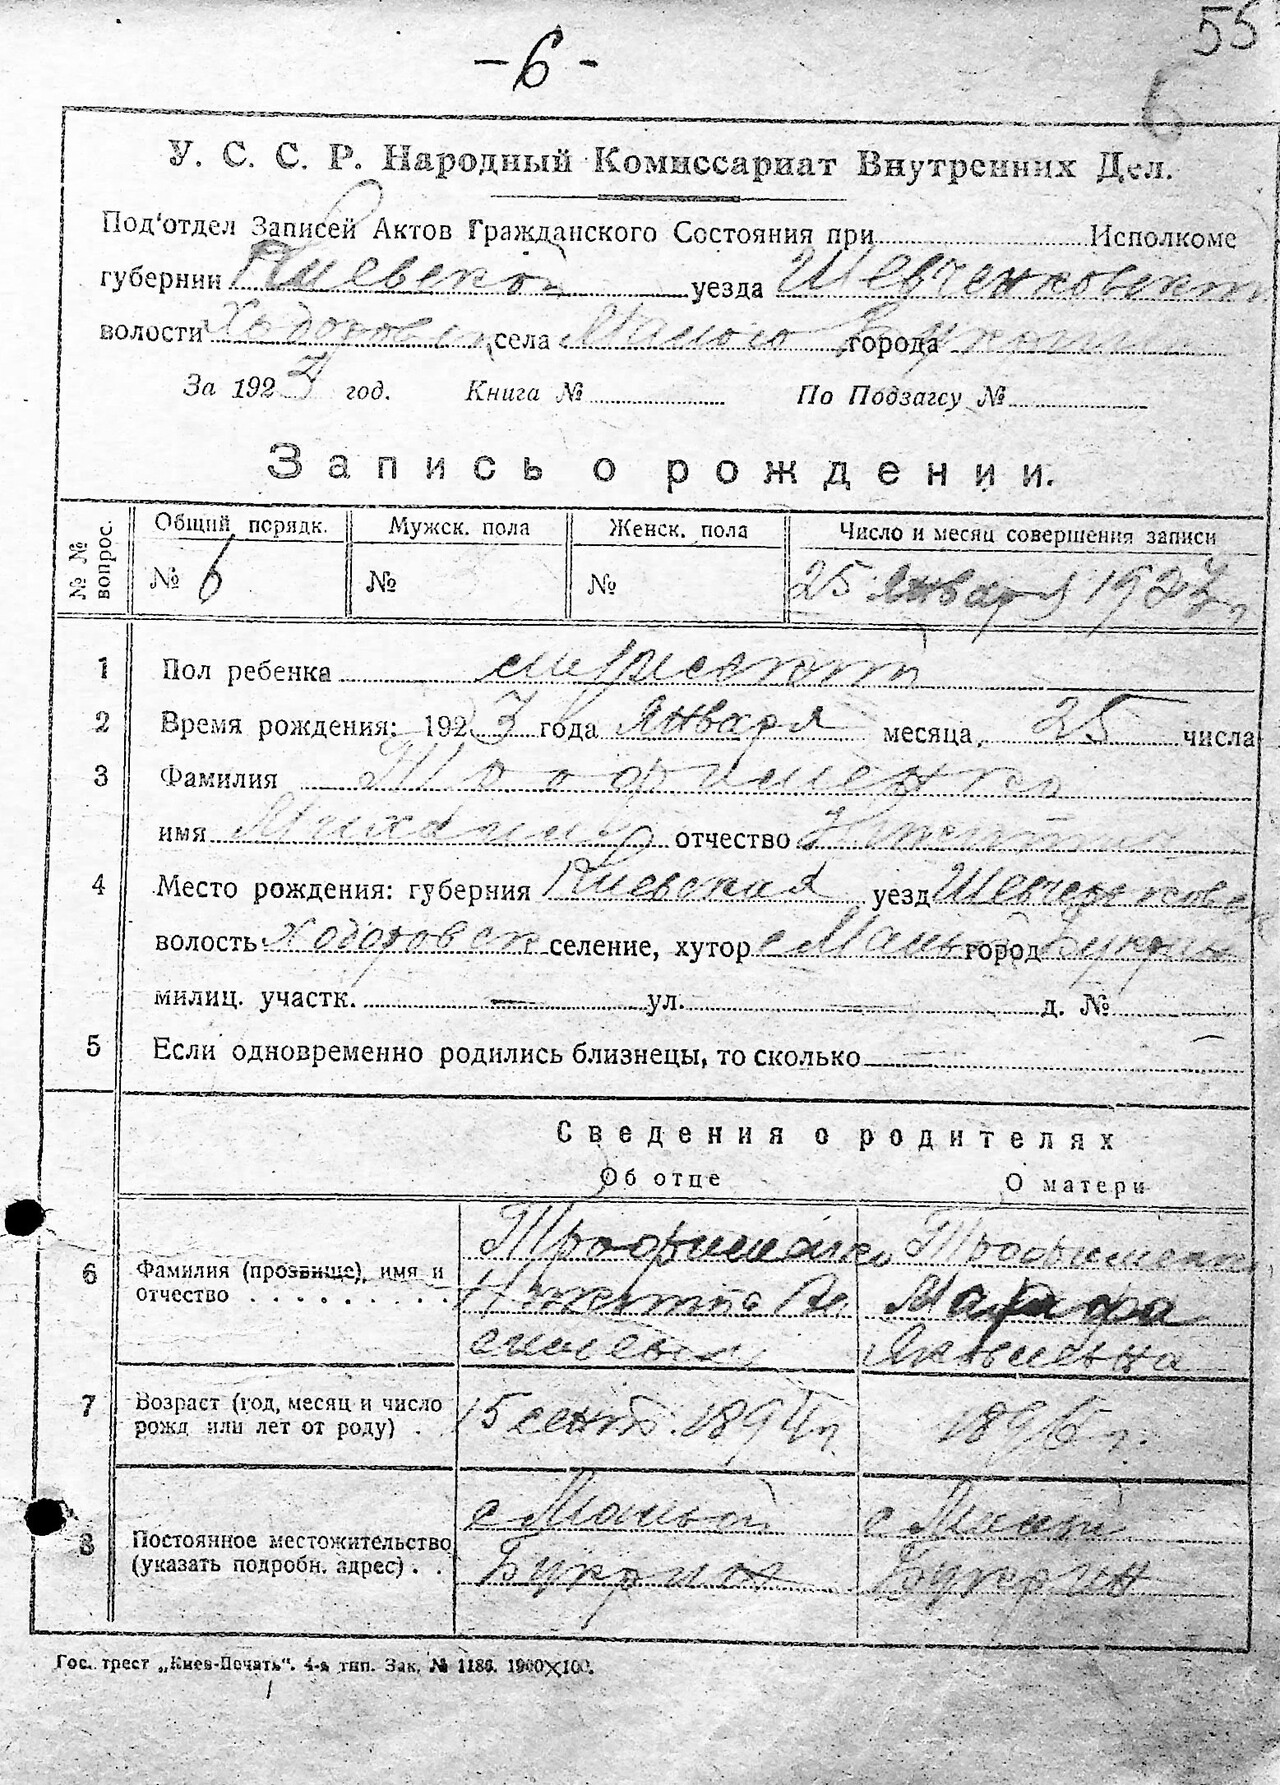 55
- 6 -
6
У. С. С. Р. Народный Комиссариат Внутренних Дел.
Под'отдел Записей Актов Гражданского Состояния при Исполкоме
губернии Киевской уезда Шевченковск
волости Ходоровск села Малого города Букрин
За 1923 год. Книга № По Подзагсу №
Запись о рождении.
№№ вопрос. Общий порядк. Мужск. пола Женск. пола Число и месяц совершения записи
№ 6 № № 25 Января 1923 г
1 Пол ребенка
2 Время рождения: 1923 года Января месяца, 25 числа
3 Фамилия Трофименко
имя Михаил отчество
4 Место рождения: губерния Киевская уезд Шевченковск
волость Ходоровск селение, хутор с Малый город Букрин
милиц. участк. — ул. — д. №
5 Если одновременно родились близнецы, то сколько —
Сведения о родителях
Об отце О матери
6 Фамилия (прозвище), имя и отчество . . . . . . . . .
Трофименко Трофименко
Никита Ва Марфа
Яковлевна
7 Возраст (год, месяц и число рожд или лет от роду) .
15 сент. 1894 г. 1896 г.
8 Постоянное местожительство (указать подробн. адрес) . .
с Малый с Мал
Букрин Букрин
Гос. трест „Киев-Печать". 4-я тип. Зак. № 1186. 1900×100.